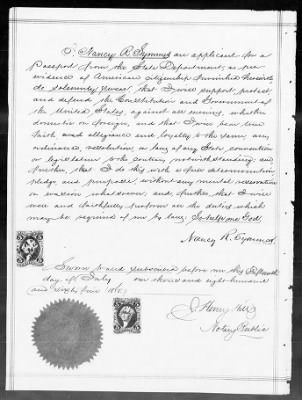 I, Nancy R. Symmes an applicant for a
Passport from the State Department, as per
evidence of American citizenship furnished herewith
do solemnly swear, that I will support, protect,
and defend the Constitution and Government of
the United States, against all enemies, whether
domestic or foreign, and that I will bear true
faith and allegiance and loyalty to the same, any
ordinance, resolution, or law of any State convention
or legislature to the contrary notwithstanding; and
further, that I do this with a full determination,
pledge, and purpose, without any mental reservation
or evasion whatsoever, and, further, that I will
well and faithfully perform all the duties which
may be required of me by law; So help me God.
Nancy R. Symmes
Sworn to and subscribed before me this
day of July one thousand eight hundred
and sixty
J. Henry
Notary Public